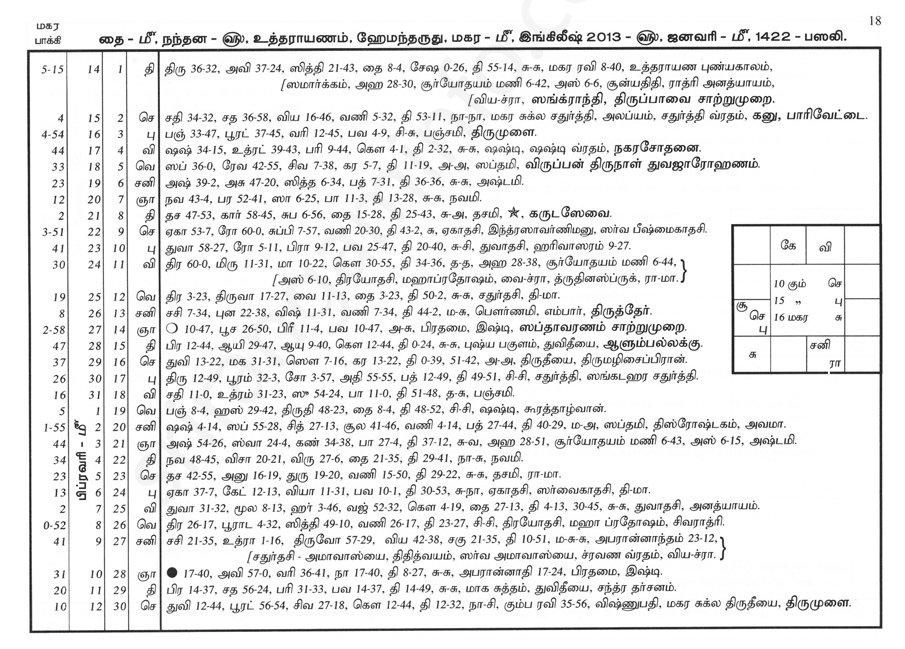 18
மகர
பாக்கி
தை - மீ, நந்தன - ௵, உத்தராயணம், ஹேமந்தருது, மகர - மீ, இங்கிலீஷ் 2013 - ௵, ஜனவரி - மீ, 1422 - பஸலி.
5-15 14 1 தி திரு 36-32, அவி 37-24, ஸித்தி 21-43, தை 8-4, சேஷ 0-26, தி 55-14, சு-சு, மகர ரவி 8-40, உத்தராயண புண்யகாலம்,
[ஸமார்க்கம், அஹ 28-30, சூர்யோதயம் மணி 6-42, அஸ் 6-6, சூன்யதிதி, ராத்ரி அனத்யாயம்,
[விய-ச்ரா, ஸங்க்ராந்தி, திருப்பாவை சாற்றுமுறை.
4 15 2 செ சதி 34-32, சத 36-58, விய 16-46, வணி 5-32, தி 53-11, நா-நா, மகர சுக்ல சதுர்த்தி, அலப்யம், சதுர்த்தி வ்ரதம், கனு, பாரிவேட்டை.
4-54 16 3 பு பஞ் 33-47, பூரட் 37-45, வரி 12-45, பவ 4-9, சி-சு, பஞ்சமி, திருமுளை.
44 17 4 வி ஷஷ் 34-15, உத்ரட் 39-43, பரி 9-44, கௌ 4-1, தி 2-32, சு-சு, ஷஷ்டி, ஷஷ்டி வ்ரதம், நகரசோதனை.
33 18 5 வெ ஸப் 36-0, ரேவ 42-55, சிவ 7-38, கர 5-7, தி 11-19, அ-அ, ஸப்தமி, விருப்பன் திருநாள் துவஜாரோஹணம்.
23 19 6 சனி அஷ் 39-2, அசு 47-20, ஸித்த 6-34, பத் 7-31, தி 36-36, சு-சு, அஷ்டமி.
12 20 7 ஞா நவ 43-4, பர 52-41, ஸா 6-25, பா 11-3, தி 13-28, சு-சு, நவமி.
2 21 8 தி தச 47-53, கார் 58-45, சுப 6-56, தை 15-28, தி 25-43, சு-அ, தசமி, ★, கருடஸேவை.
3-51 22 9 செ ஏகா 53-7, ரோ 60-0, சுப்பி 7-57, வணி 20-30, தி 43-2, சு, ஏகாதசி, இந்த்ரஸாவர்ணிமனு, ஸர்வ பீஷ்மைகாதசி.
41 23 10 பு துவா 58-27, ரோ 5-11, பிரா 9-12, பவ 25-47, தி 20-40, சு-சி, துவாதசி, ஹரிவாஸரம் 9-27.
30 24 11 வி திர 60-0, மிரு 11-31, மா 10-22, கௌ 30-55, தி 34-36, த-த, அஹ 28-38, சூர்யோதயம் மணி 6-44,
[அஸ் 6-10, திரயோதசி, மஹாப்ரதோஷம், வை-ச்ரா, த்ருதினஸ்ப்ருக், ரா-மா.
19 25 12 வெ திர 3-23, திருவா 17-27, வை 11-13, தை 3-23, தி 50-2, சு-சு, சதுர்தசி, தி-மா.
8 26 13 சனி சசி 7-34, புன 22-38, விஷ் 11-31, வணி 7-34, தி 44-2, ம-சு, பௌர்ணமி, எம்பார், திருத்தேர்.
2-58 27 14 ஞா ○ 10-47, பூச 26-50, பிரீ 11-4, பவ 10-47, அ-சு, பிரதமை, இஷ்டி, ஸப்தாவரணம் சாற்றுமுறை.
47 28 15 தி பிர 12-44, ஆயி 29-47, ஆயு 9-40, கௌ 12-44, தி 0-24, சு-சு, புஷ்ய பகுளம், துவிதீயை, ஆளும்பல்லக்கு.
37 29 16 செ துவி 13-22, மக 31-31, ஸௌ 7-16, கர 13-22, தி 0-39, 51-42, அ-அ, திருதீயை, திருமழிசைப்பிரான்.
26 30 17 பு திரு 12-49, பூரம் 32-3, சோ 3-57, அதி 55-55, பத் 12-49, தி 49-51, சி-சி, சதுர்த்தி, ஸங்கடஹர சதுர்த்தி.
16 31 18 வி சதி 11-0, உத்ரம் 31-23, ஸு 54-24, பா 11-0, தி 51-48, த-சு, பஞ்சமி.
5 1 19 வெ பஞ் 8-4, ஹஸ் 29-42, திருதி 48-23, தை 8-4, தி 48-52, சி-சி, ஷஷ்டி, கூரத்தாழ்வான்.
பிப்ரவரி - மீ
1-55 2 20 சனி ஷஷ் 4-14, ஸப் 55-28, சித் 27-13, சூல 41-46, வணி 4-14, பத் 27-44, தி 40-29, ம-அ, ஸப்தமி, திஸ்ரோஷ்டகம், அவமா.
44 3 21 ஞா அஷ் 54-26, ஸ்வா 24-4, கண் 34-38, பா 27-4, தி 37-12, சு-வ, அஹ 28-51, சூர்யோதயம் மணி 6-43, அஸ் 6-15, அஷ்டமி.
34 4 22 தி நவ 48-45, விசா 20-21, விரு 27-6, தை 21-35, தி 29-41, நா-சு, நவமி.
23 5 23 செ தச 42-55, அனு 16-19, துரு 19-20, வணி 15-50, தி 29-22, சு-சு, தசமி, ரா-மா.
13 6 24 பு ஏகா 37-7, கேட் 12-13, வியா 11-31, பவ 10-1, தி 30-53, சு-நா, ஏகாதசி, ஸர்வைகாதசி, தி-மா.
2 7 25 வி துவா 31-32, மூல 8-13, ஹர் 3-46, வஜ் 52-32, கௌ 4-19, தை 27-13, தி 4-13, 30-45, சு-சு, துவாதசி, அனத்யாயம்.
0-52 8 26 வெ திர 26-17, பூராட 4-32, ஸித்தி 49-10, வணி 26-17, தி 23-27, சி-சி, திரயோதசி, மஹா ப்ரதோஷம், சிவராத்ரி.
41 9 27 சனி சசி 21-35, உத்ரா 1-16, திருவோ 57-29, விய 42-38, சகு 21-35, தி 10-51, ம-சு-சு, அபரான்னாந்தம் 23-12,
[சதுர்தசி - அமாவாஸ்யை, திதித்வயம், ஸர்வ அமாவாஸ்யை, ச்ரவண வ்ரதம், விய-ச்ரா.
31 10 28 ஞா ● 17-40, அவி 57-0, வரி 36-41, நா 17-40, தி 8-27, சு-சு, அபரான்னாதி 17-24, பிரதமை, இஷ்டி.
20 11 29 தி பிர 14-37, சத 56-24, பரி 31-33, பவ 14-37, தி 14-49, சு-சு, மாக சுத்தம், துவிதீயை, சந்த்ர தர்சனம்.
10 12 30 செ துவி 12-44, பூரட் 56-54, சிவ 27-18, கௌ 12-44, தி 12-32, நா-சி, கும்ப ரவி 35-56, விஷ்ணுபதி, மகர சுக்ல திருதீயை, திருமுளை.
கே வி
10 கும் செ
சூ செ பு 15 ,, பு
16 மகர சு
சு சனி ரா